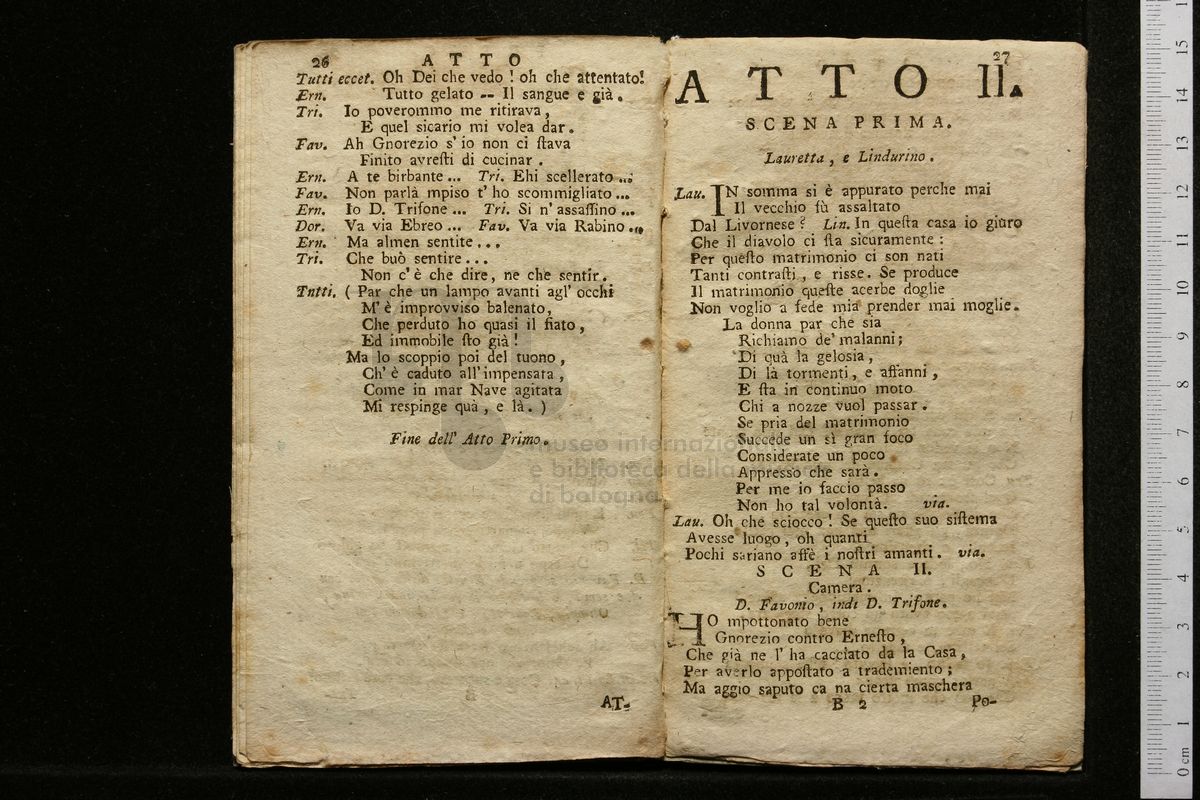 26 A T T O
Tutti eccet. Oh Dei che vedo ! oh che attentato!
Ern. Tutto gelato -- Il sangue e già.
Tri. Io poverommo me ritirava,
E quel sicario mi volea dar.
Fav. Ah Gnorezio s' io non ci ſtava
Finito avreſti di cucinar.
Ern. A te birbante ... Tri. Ehi scellerato ...
Fav. Non parlà mpiso t' ho scommigliato ...
Ern. Io D. Trifone ... Tri. Si n' assaſſino ...
Dor. Va via Ebreo ... Fav. Va via Rabino ...
Ern. Ma almen sentite ...
Tri. Che buò sentire ...
Non c' è che dire, ne che sentir.
Tntti. ( Par che un lampo avanti agl' occhi
M' è improvviso balenato,
Che perduto ho quasi il fiato,
Ed immobile ſto già !
Ma lo scoppio poi del tuono,
Ch' è caduto all' impensata,
Come in mar Nave agitata
Mi respinge quà, e là. )
Fine dell' Atto Primo.
AT-
27
A T T O II.
SCENA PRIMA.
Lauretta, e Lindurino.
Lau. IN somma si è appurato perche mai
Il vecchio fù assaltato
Dal Livornese ? Lin. In queſta casa io giuro
Che il diavolo ci ſta sicuramente :
Per queſto matrimonio ci son nati
Tanti contraſti, e risse. Se produce
Il matrimonio queſte acerbe doglie
Non voglio a fede mia prender mai moglie.
La donna par che sia
Richiamo de' malanni;
Di quà la gelosia,
Di là tormenti, e affanni,
E ſta in continuo moto
Chi a nozze vuol passar.
Se pria del matrimonio
Succede un sì gran foco
Considerate un poco
Appresso che sarà.
Per me io faccio passo
Non ho tal volontà. via.
Lau. Oh che sciocco ! Se queſto suo siſtema
Avesse luogo, oh quanti
Pochi sariano affè i noſtri amanti. via.
S C E N A II.
Camera.
D. Favonio, indi D. Trifone.
HO mpottonato bene
Gnorezio contro Erneſto,
Che già ne l' ha cacciato da la Casa,
Per averlo appoſtato a trademiento;
Ma aggio saputo ca na cierta maschera
B 2 Po-
museo internazio
e biblioteca della
di bologna
0 cm 1 2 3 4 5 6 7 8 9 10 11 12 13 14 15